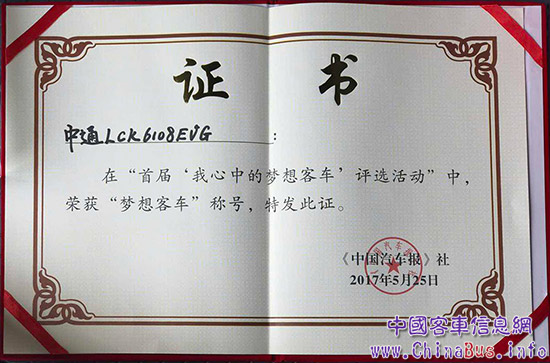 证 书
中通LCK6108EVG:
在“首届‘我心中的梦想客车’评选活动”中,
荣获“梦想客车”称号,特发此证。
《中国汽车报》社
2017年5月25日
中國客車信息網
www.ChinaBus.info